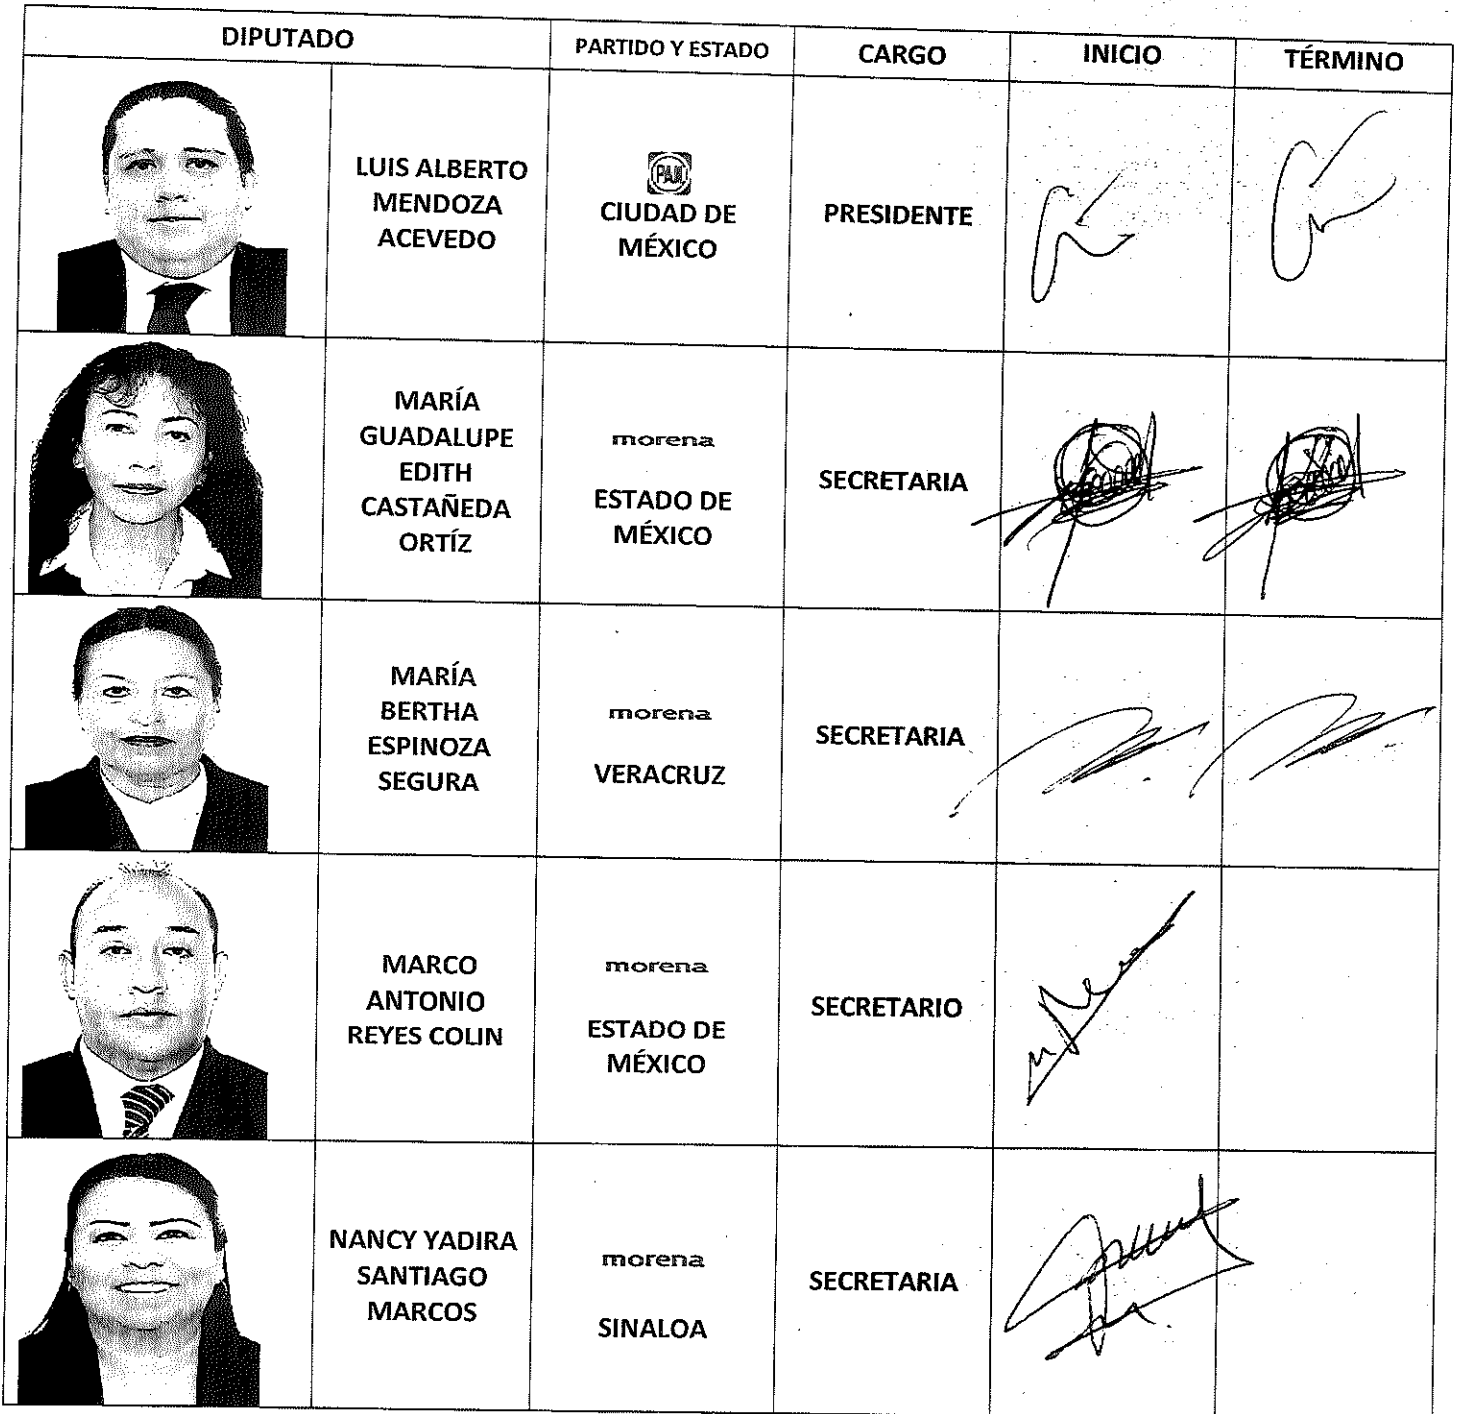 DIPUTADO PARTIDO Y ESTADO CARGO INICIO TÉRMINO
LUIS ALBERTO
MENDOZA
ACEVEDO
PAN
CIUDAD DE
MÉXICO
PRESIDENTE
MARÍA
GUADALUPE
EDITH
CASTAÑEDA
ORTÍZ
morena
ESTADO DE
MÉXICO
SECRETARIA
MARÍA
BERTHA
ESPINOZA
SEGURA
morena
VERACRUZ
SECRETARIA
MARCO
ANTONIO
REYES COLIN
morena
ESTADO DE
MÉXICO
SECRETARIO
NANCY YADIRA
SANTIAGO
MARCOS
morena
SINALOA
SECRETARIA